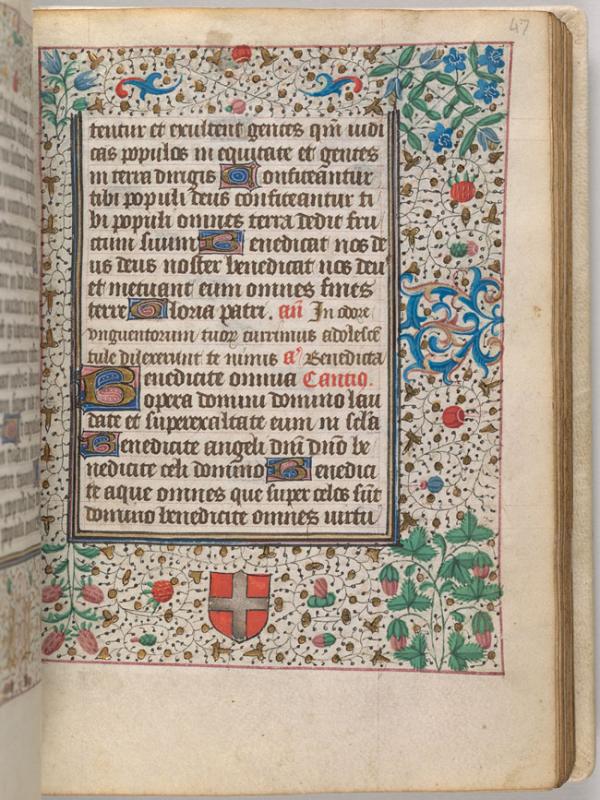 47
tentur et exultent gentes qm̄ iudi
cas populos in equitate et gentes
in terra dirigis Confiteantur
tibi populi deus confiteantur ti
bi populi omnes terra dedit fru
ctum suum Benedicat nos de
us deus noster benedicat nos deu
et metuant eum omnes fines
terre Gloria patri. an̄ In odore
vnguentorum tuoꝝ currimus adolescē
tule dilexerunt te nimis aꝰ Benedicta
Benedicite omnia Cantiq.
opera domini domino lau
date et superexaltate eum in scl̄a
Benedicite angeli dn̄i dn̄o be
nedicite celi domino Benedici
te aque omnes que super celos sūt
domino benedicite omnes uirtu